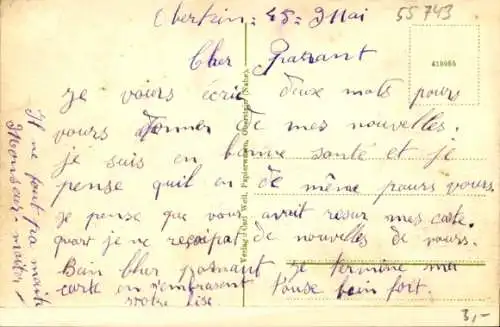 Oberstein : 25 : Mai
55743
Cher Parrant
418965
je vours écrie deux mots pours
vours donner de mes nouvelles.
je suis en bonne santé et je
pense quil en de même pours vours.
je pense que vous avait resur mes carte.
quart je ne reçoipat de nouvelles de vours.
Bain Cher parrant je termine ma
carte en n'embrasant touse bein fort.
votre
Il ne faut pa
Monsieur
Verlag : Carl Well, Papierwaren, Oberstein (Nahe).
3,-